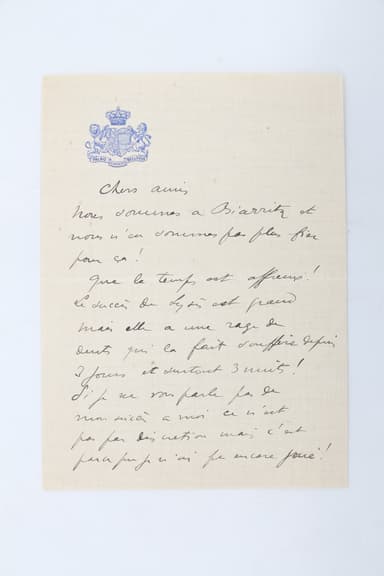 Chers amis
Nous sommes a Biarritz et
nous n'en sommes pas plus fier
pour ça!
Que le temps est affreux!
Le succès de Lysès est grand
mais elle a une rage de
dents qui la fait souffrir depuis
3 jours et surtout 3 nuits!
Si je ne vous parle pas de
mon succès a moi ce n'est
pas par discretion mais c'est
parce que je n'ai pas encore joué!